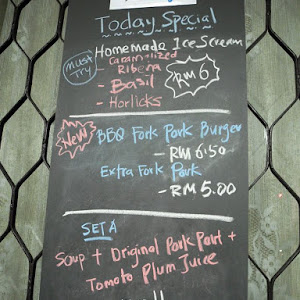 Today Special
Homemade Ice Scream
Must Try
Caramalized
Ribena
- Basil
- Horlicks
RM 6
New
BBQ Fork Pork Burger
- RM 6.50
Extra Fork Pork
- RM 5.00
SET A
Soup + Original Pork Part +
Tomato Plum Juice